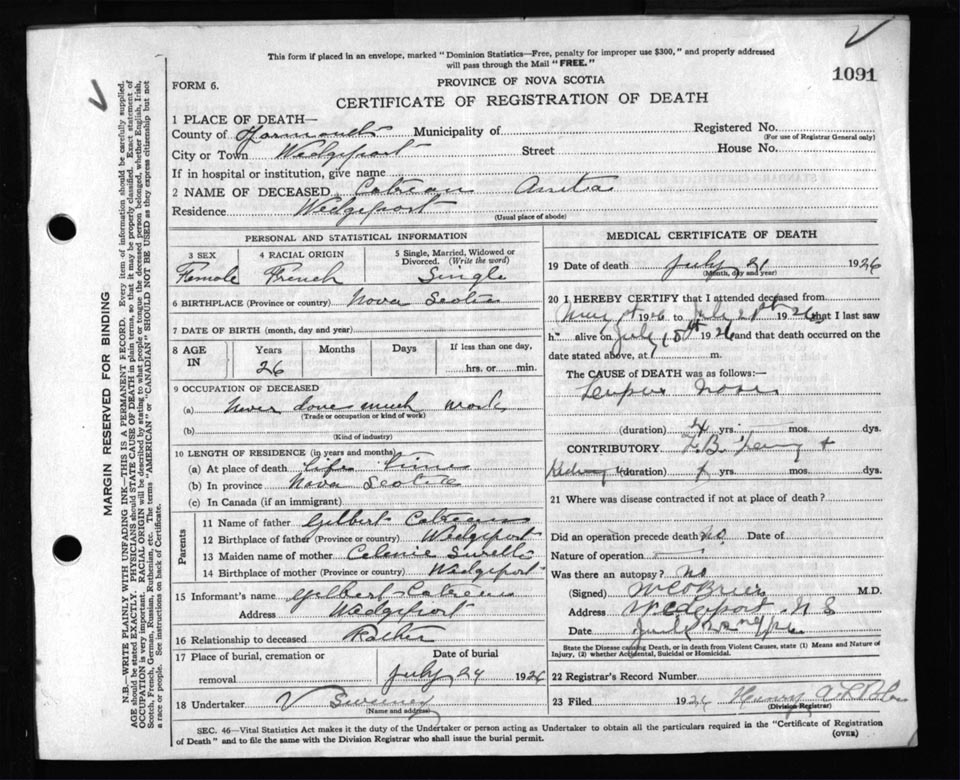 This form if placed in an envelope, marked "Dominion Statistics—Free, penalty for improper use $300," and properly addressed
will pass through the Mail "FREE."
1091
FORM 6.
PROVINCE OF NOVA SCOTIA
CERTIFICATE OF REGISTRATION OF DEATH
1 PLACE OF DEATH—
County of Yarmouth Municipality of Registered No.
(For use of Registrar General only)
City or Town Wedgeport Street House No.
If in hospital or institution, give name
2 NAME OF DECEASED
Residence Wedgeport
(Usual place of abode)
PERSONAL AND STATISTICAL INFORMATION
3 SEX 4 RACIAL ORIGIN 5 Single, Married, Widowed or
Divorced. (Write the word)
Female French Single
6 BIRTHPLACE (Province or country) Nova Scotia
7 DATE OF BIRTH (month, day and year)
8 AGE IN Years Months Days If less than one day,
26 hrs. or min.
9 OCCUPATION OF DECEASED
(a) Never done much work
(Trade or occupation or kind of work)
(b)
(Kind of industry)
10 LENGTH OF RESIDENCE (in years and months)
(a) At place of death life time
(b) In province Nova Scotia
(c) In Canada (if an immigrant)
Parents
11 Name of father Gilbert
12 Birthplace of father (Province or country) Wedgeport
13 Maiden name of mother
14 Birthplace of mother (Province or country) Wedgeport
15 Informant's name Gilbert
Address Wedgeport
16 Relationship to deceased Father
17 Place of burial, cremation or Date of burial
removal July 24 1926
18 Undertaker V Sweeney
(Name and address)
MEDICAL CERTIFICATE OF DEATH
19 Date of death July 21 1926
(Month, day and year)
20 I HEREBY CERTIFY that I attended deceased from
1926 to July 1926 that I last saw
h alive on July 1926 and that death occurred on
date stated above, at m.
The CAUSE of DEATH was as follows:—
(duration) 4 yrs. mos. dys.
CONTRIBUTORY T.B.
(duration) mos. dys.
21 Where was disease contracted if not at place of death?
Did an operation precede death no. Date of
Nature of operation
Was there an autopsy? no
(Signed) M.D.
Address Wedgeport N S
Date
State the Disease causing Death, or in death from Violent Causes, state (1) Means and Nature of
Injury, (2) whether Accidental, Suicidal or Homicidal.
22 Registrar's Record Number
23 Filed 1926 Henry
(Division Registrar)
SEC. 46—Vital Statistics Act makes it the duty of the Undertaker or person acting as Undertaker to obtain all the particulars required in the "Certificate of Registration
of Death" and to file the same with the Division Registrar who shall issue the burial permit.
(OVER)
MARGIN RESERVED FOR BINDING
N.B.—WRITE PLAINLY WITH UNFADING INK—THIS IS A PERMANENT RECORD. Every item of information should be carefully supplied.
AGE should be stated EXACTLY. PHYSICIANS should STATE CAUSE OF DEATH in plain terms, so that it may be properly classified. Exact statement of
OCCUPATION is very important. RACIAL ORIGIN will be described by stating to what people or tongue the deceased person belonged, whether English, Irish,
Scotch, French, German, Russian, Ruthenian, etc. The terms "AMERICAN" or "CANADIAN" SHOULD NOT BE USED as they express citizenship but not
a race or people. See instructions on back of Certificate.